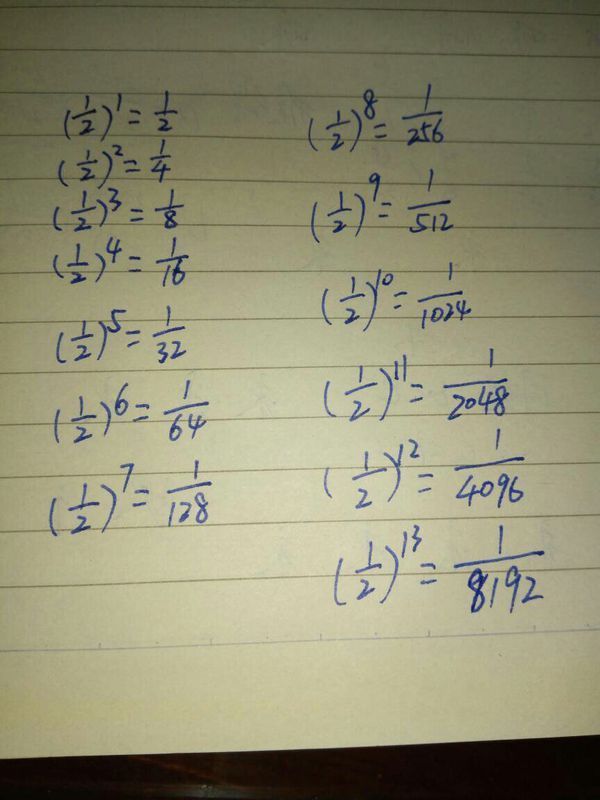 (1/2)^1 = 1/2
(1/2)^2 = 1/4
(1/2)^3 = 1/8
(1/2)^4 = 1/16
(1/2)^5 = 1/32
(1/2)^6 = 1/64
(1/2)^7 = 1/128
(1/2)^8 = 1/256
(1/2)^9 = 1/512
(1/2)^10 = 1/1024
(1/2)^11 = 1/2048
(1/2)^12 = 1/4096
(1/2)^13 = 1/8192